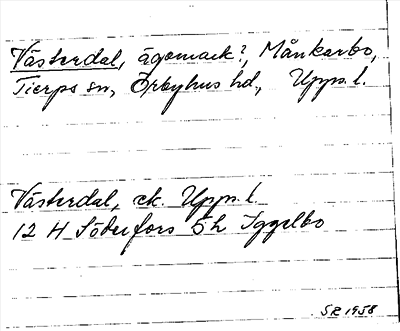 Västerdal, ägomark?, Månkarbo,
Tierps sn, Örbyhus hd., Upps. l.
Västerdal, ek. Upps. l.
12 H Söderfors 5h Iggelbo
SR 1958